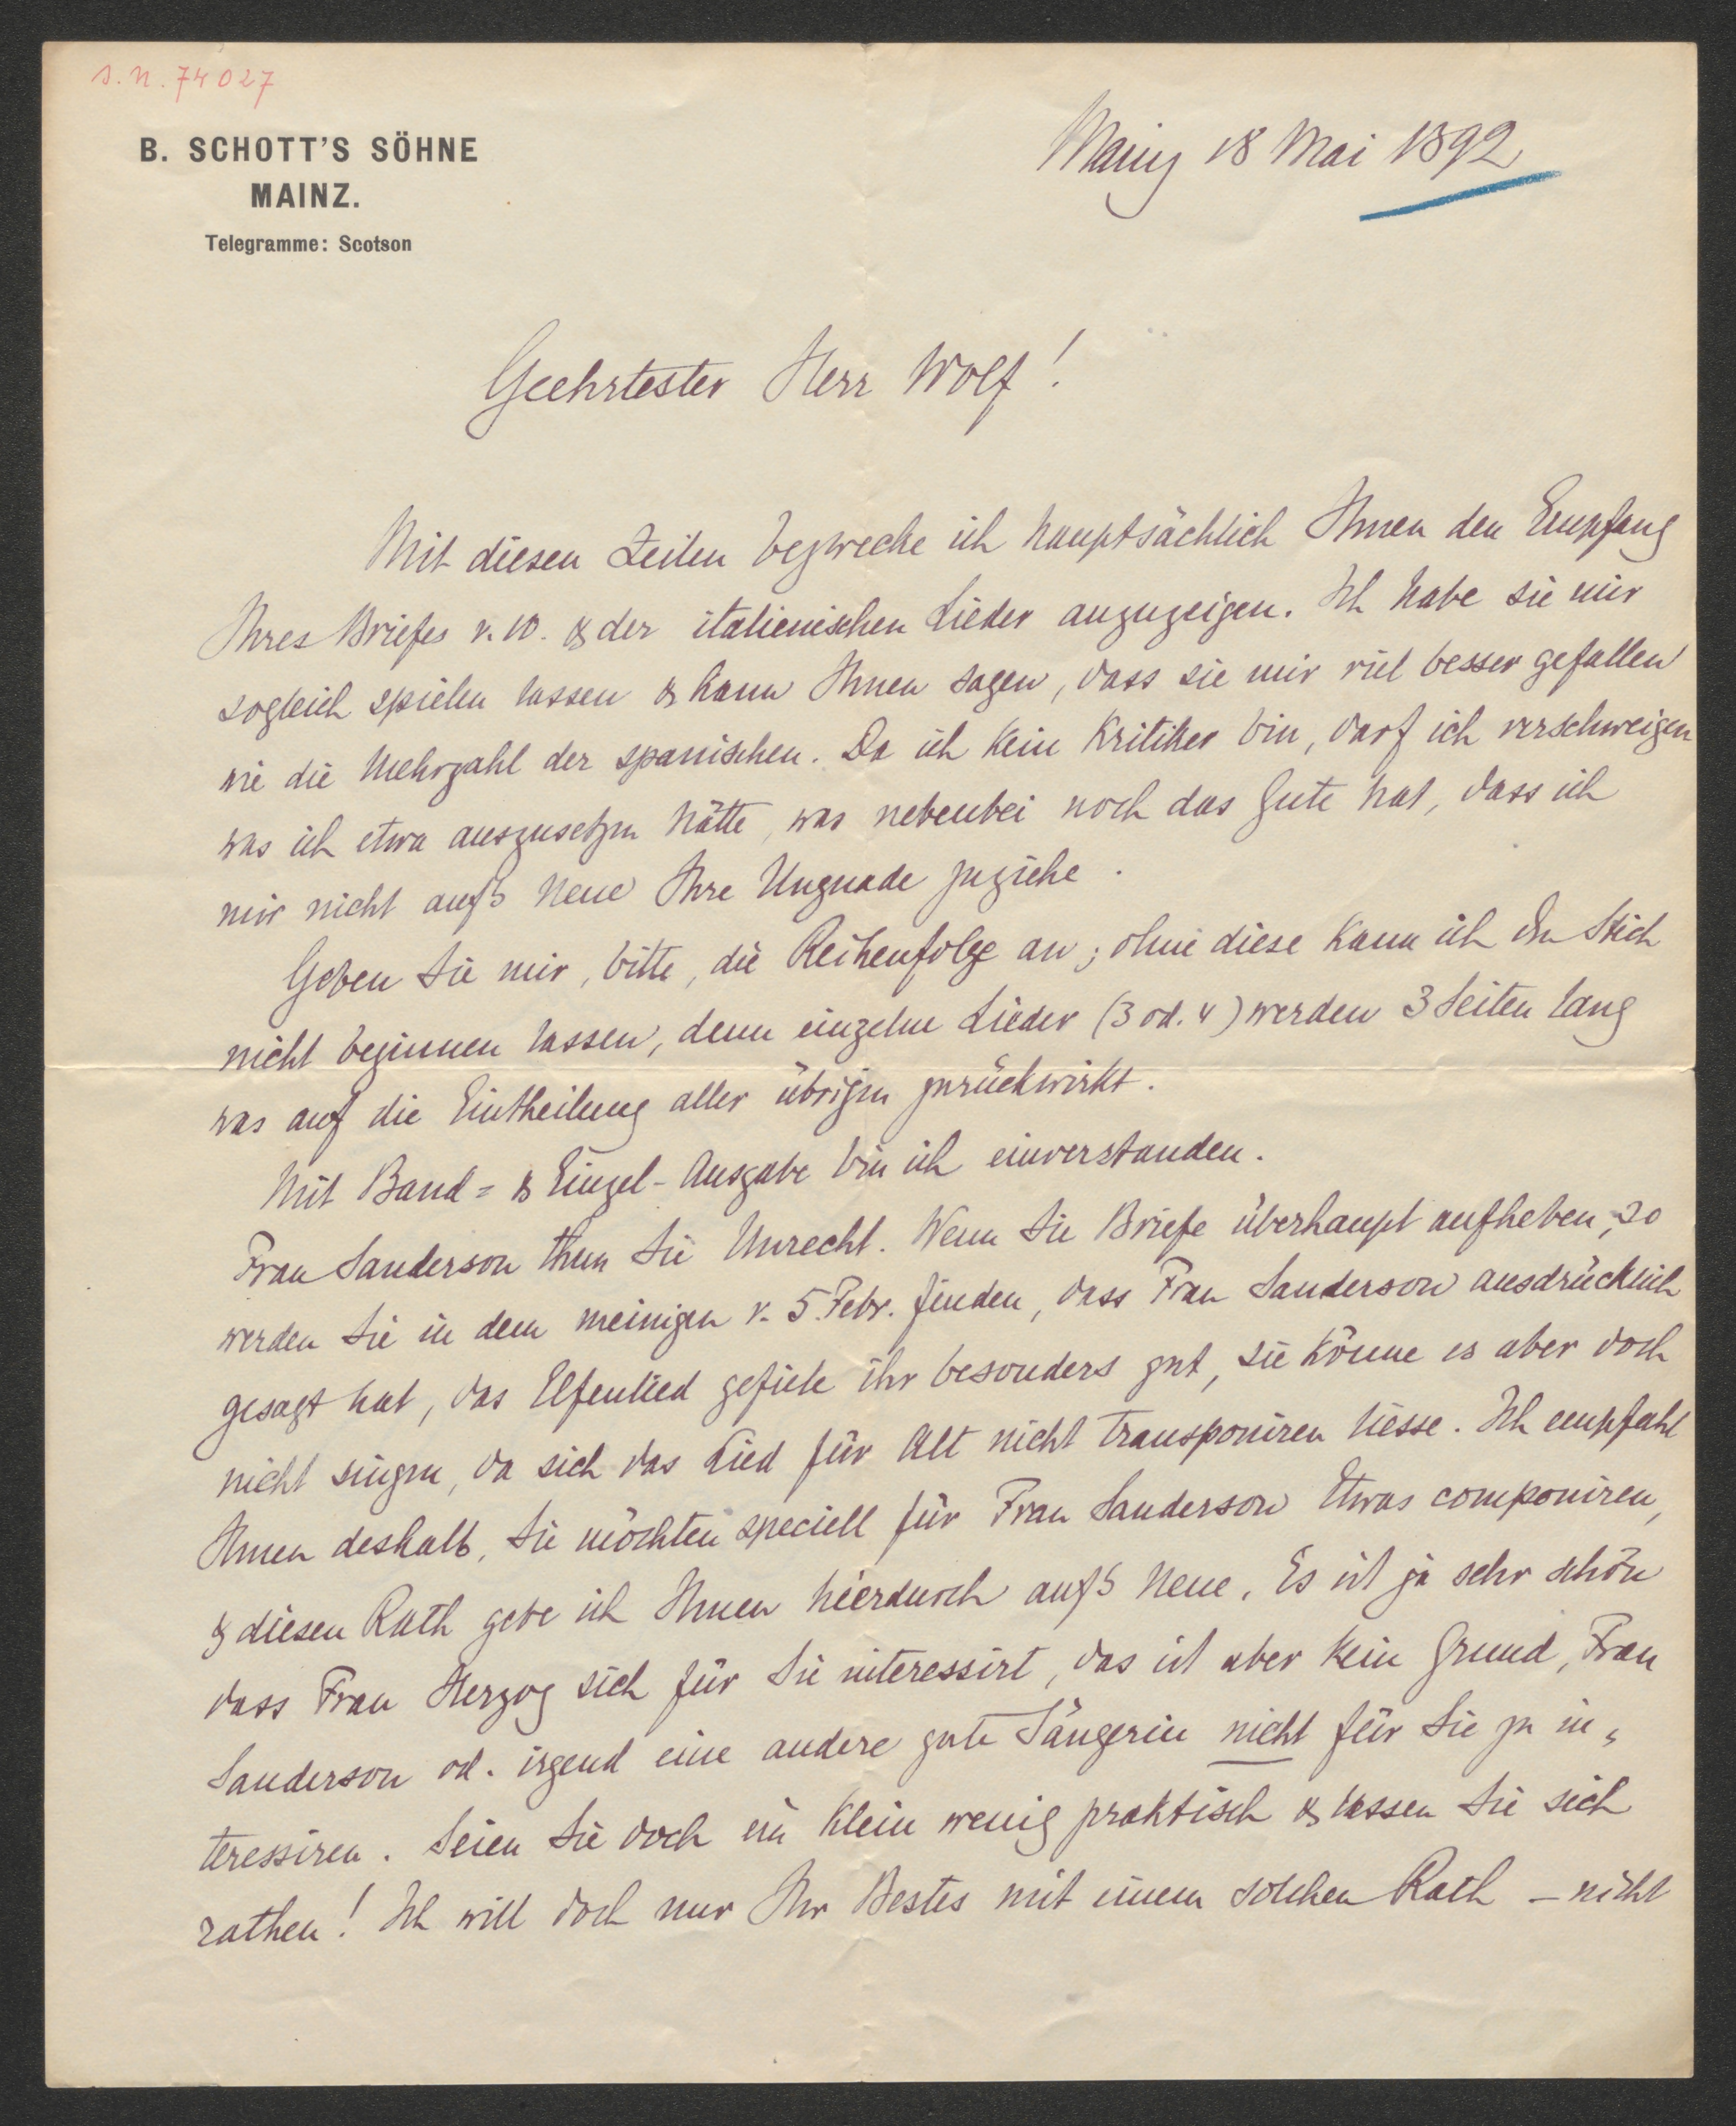 s. n. 74027
B. SCHOTT'S SÖHNE
MAINZ.
Telegramme: Scotson
Mainz 18 Mai 1892
Geehrtester Herr Wolf!
Mit diesen Zeilen bezwecke ich hauptsächlich Ihnen den Empfang
Ihres Briefes v. 10. & der italienischen Lieder anzuzeigen. Ich habe sie mir
sogleich spielen lassen & kann Ihnen sagen, dass sie mir viel besser gefallen
wie die Mehrzahl der spanischen. Da ich kein Kritiker bin, darf ich verschweigen
was ich etwa auszusetzen hätte, was nebenbei noch das Gute hat, dass ich
mir nicht auf's Neue Ihre Ungnade zuziehe.
Geben Sie mir, bitte, die Reihenfolge an; ohne diese kann ich den Stich
nicht beginnen lassen, denn einzelne Lieder (3 od. 4) werden 3 Seiten lang
was auf die Eintheilung aller übrigen zurückwirkt.
Mit Band= & Einzel-Ausgabe bin ich einverstanden.
Frau Sanderson thun Sie Unrecht. Wenn Sie Briefe überhaupt aufheben, so
werden Sie in dem meinigen v. 5. Febr. finden, dass Frau Sanderson ausdrücklich
gesagt hat, das Elfenlied gefiele ihr besonders gut, sie könne es aber doch
nicht singen, da sich das Lied für Alt nicht transponiren liesse. Ich empfahl
Ihnen deshalb, Sie möchten speciell für Frau Sanderson Etwas componiren,
& diesen Rath gebe ich Ihnen hierdurch auf's Neue. Es ist ja sehr schön
dass Frau Herzog sich für Sie interessirt, das ist aber kein Grund, Frau
Sanderson od. irgend eine andere gute Sängerin nicht für Sie zu in=
teressiren. Seien Sie doch ein klein wenig praktisch & lassen Sie sich
rathen! Ich will doch nur Ihr Bestes mit einem solchen Rath – nicht